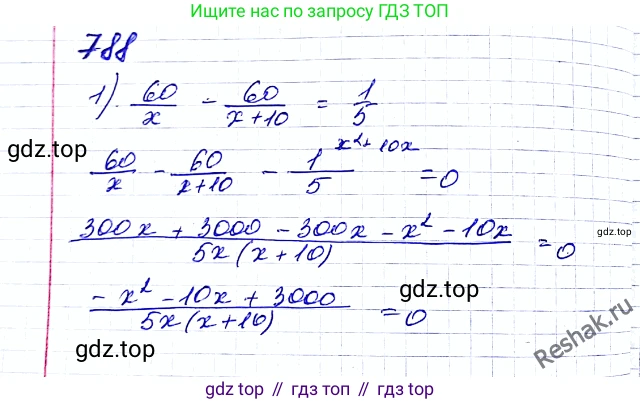 Ищите нас по запросу ГДЗ ТОП
788
1). 60/x - 60/(x+10) = 1/5
gdz.top
60/x - 60/(x+10) - 1/5 x²+10x = 0
gdz.top
(300x + 3000 - 300x - x² - 10x)/(5x(x+10)) = 0
(-x² - 10x + 3000)/(5x(x+10)) = 0
gdz.top
gdz.top
Reshak.ru
gdz top // гдз топ // gdz top